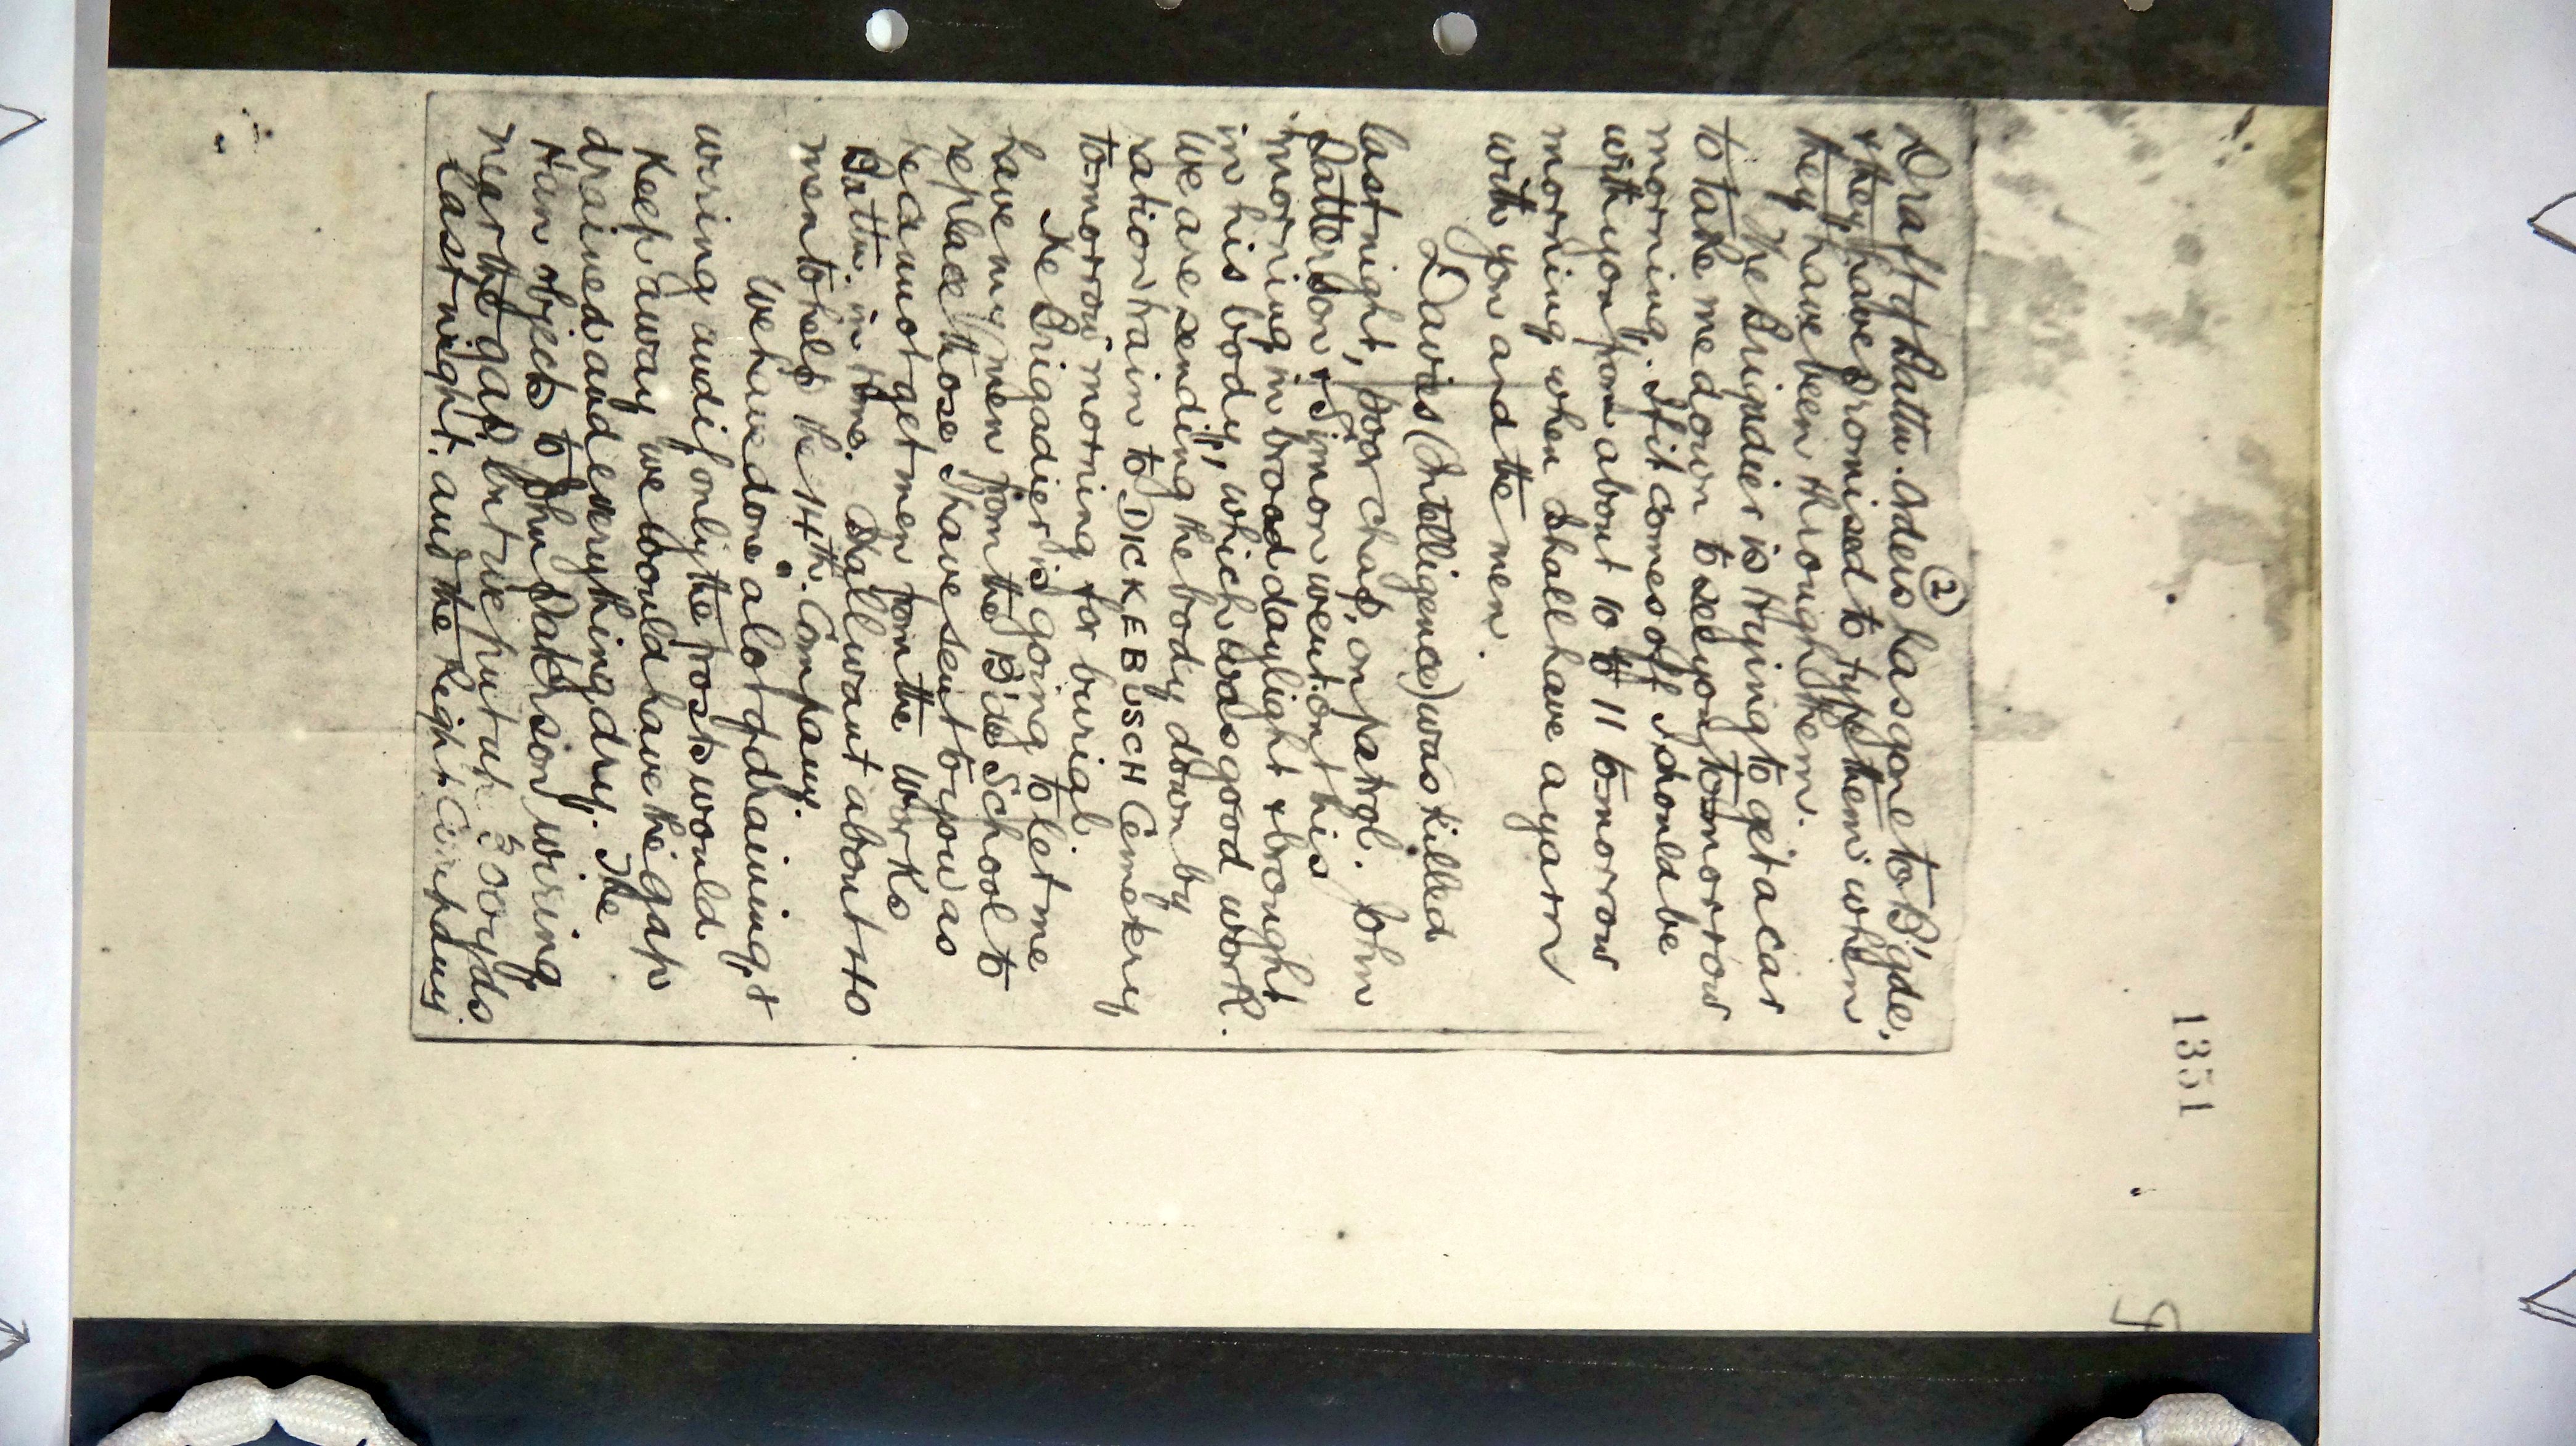 1351
②
Draft of Battn. Orders has gone to B'gde.
& they have promised to type them when
they have been through them.
The Brigadier is trying to get a car
to take me down to see you to-morrow
morning. If it comes off I should be
with you from about 10 to 11 to-morrow
morning when I shall have a yarn
with you and the men.
Davies (Intelligence) was killed
last night, poor chap, on patrol. John
Patterson & Simon went out this
morning in broad daylight & brought
in his body, which was good work.
We are sending the body down by
ration train to DICKEBUSCH Cemetery
to-morrow morning for burial.
The Brigadier is going to let me
have my men from the B'de School to
replace those I have sent to you as
he cannot get men from the Works
Battn. in time. Shall want about 40
men to help the 14th. Company.
We have done a lot of draining, &
wiring and if only the frosts would
keep away we would have the gap
drained and everything dry. The
Hun objects to John Patterson wiring
near the gap but we put up 300 yds.
last night. and the Right Company.